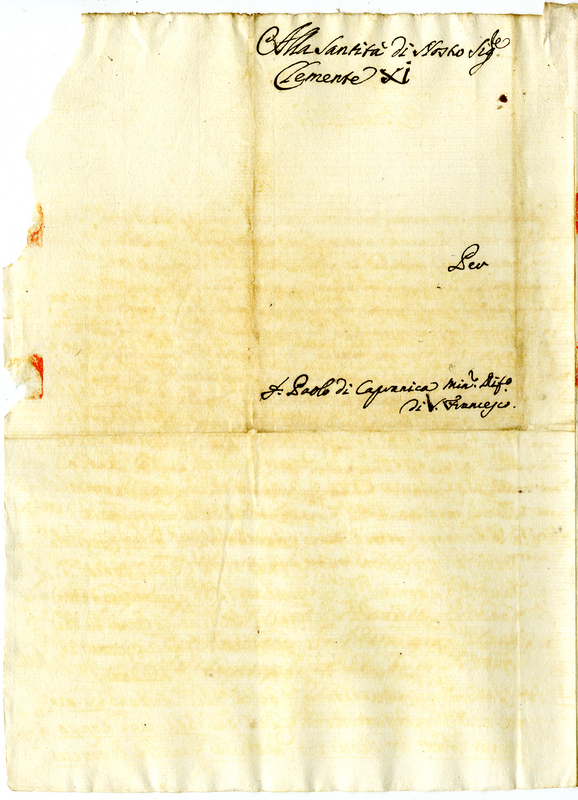 Alla Santità di Nostro Sig.re
Clemente XI
Per
f. Paolo di Capranica Min.r Rif.o
di S. Francesco.